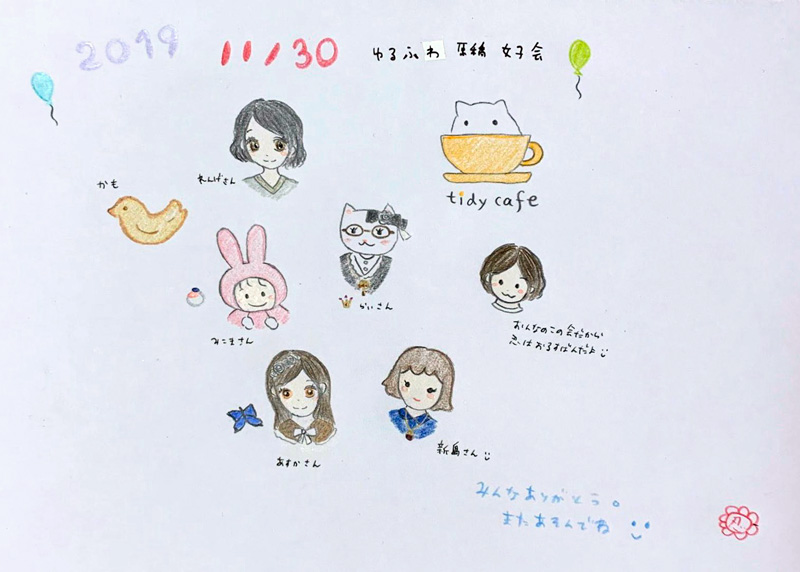 2019 11/30 ゆるふわ 原稿 女子会
れんげさん
かも
tidy cafe
らいさん
みこまさん
おんなのこの会だから
忍はおるすばんだよ
あすかさん
新島さん
みんなありがとう。
またあそんでね
忍